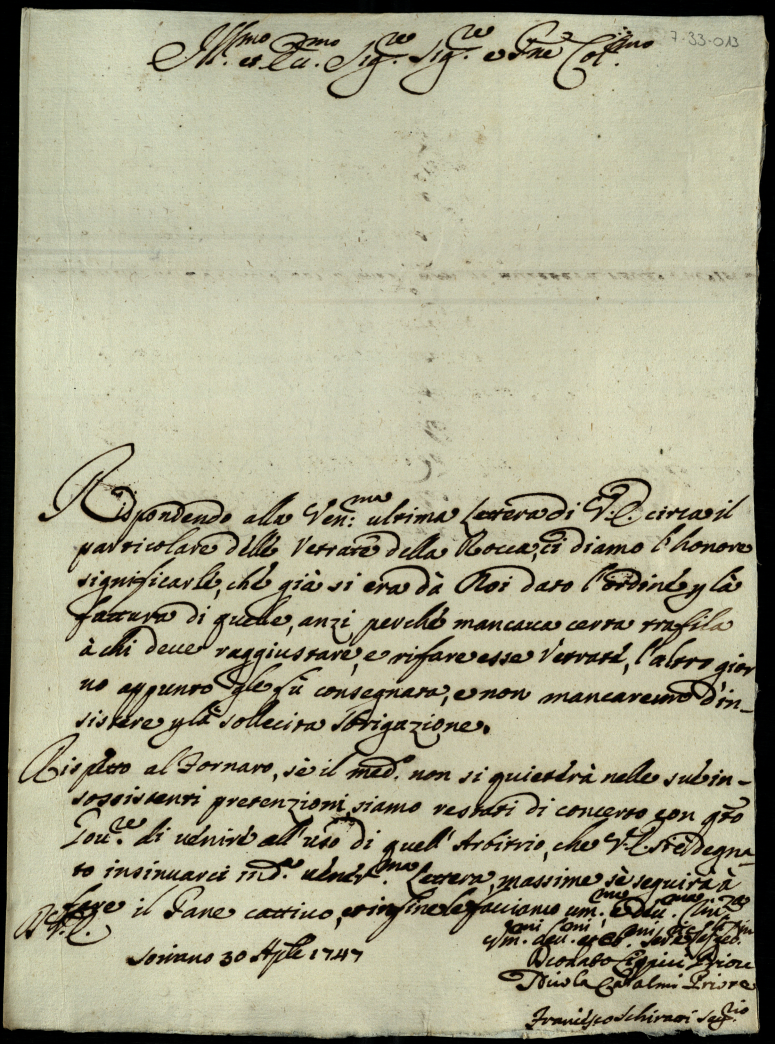 7-33-013
Ill.mo et Ecc.mo Sig.re Sig.re e Pne Col.mo
Rispondendo alla Ven:ma ultima Lettera di V.E. circa il
particolare delle Vetrate della Rocca, ci diamo l'honore
significarle, che già si era dà Noi dato l'ordine p là
fattura di quelle, anzi perche mancava certa trafila
à chi deve raggiustare, e rifare esse Vetrate, l'altro gior
no appunto gle fù consegnata, e non mancaremo d'in-
sistere p là sollecita sbrigazione.
Rispetto al Fornaro, sè il med.o non si quieterà nelle sue in-
sossistenti pretenzioni, siamo restati di concerto con qto
Gov.re di venire all'uso di quell'Arbitrio, che V.E. si è degna-
to insinuarci in d.a vener.ma Lettera, massime sè seguirà à
fare il Pane cattivo, et infine le facciamo um.me, e dev.me
Di V.E.
Soriano 30 Aple 1747
Priore
Nicola Catalmi Priore
Francesco Schirati Seg.rio